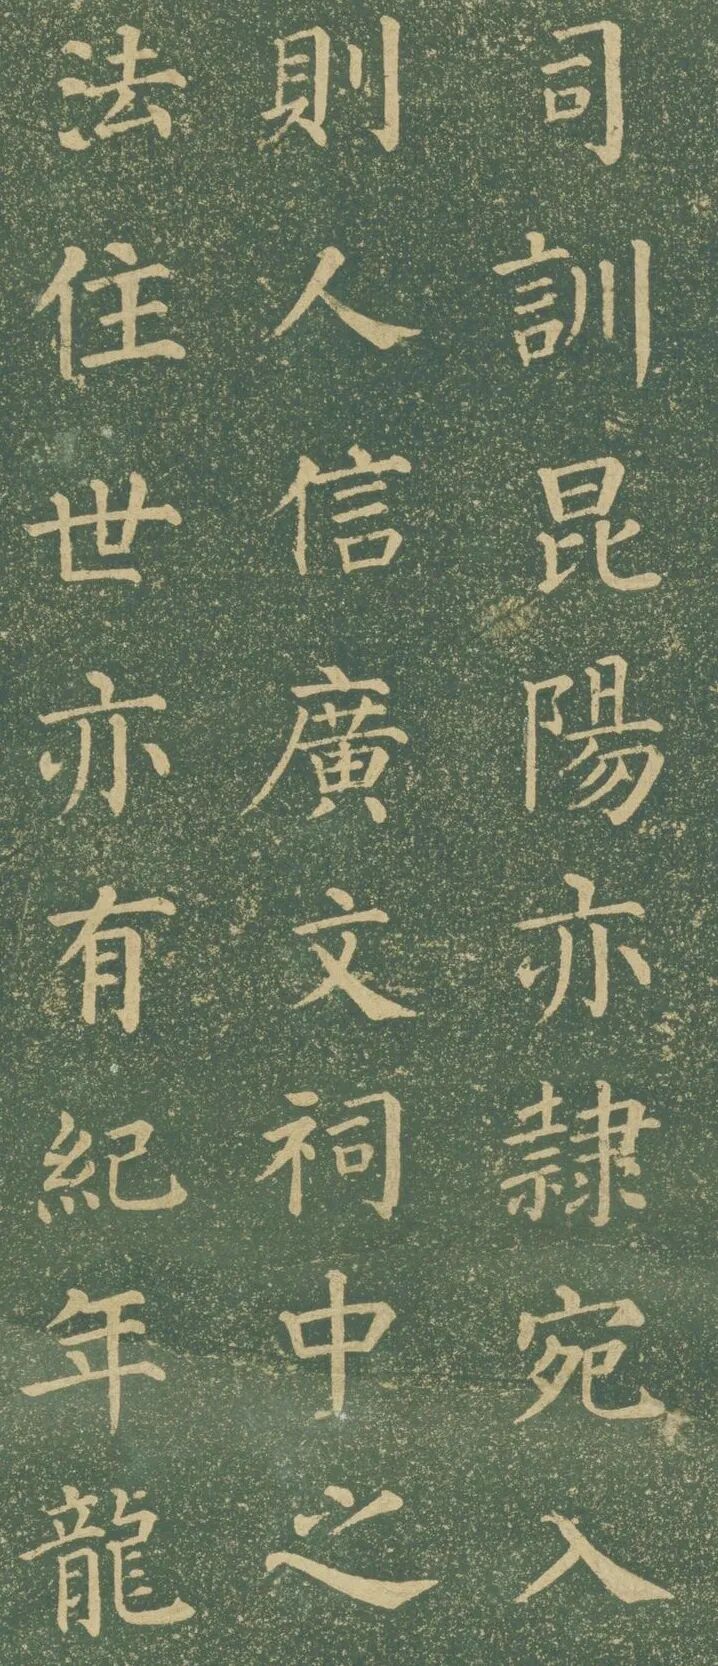 司訓昆陽亦隷宛入
則人信廣文祠中之
法住世亦有紀年龍